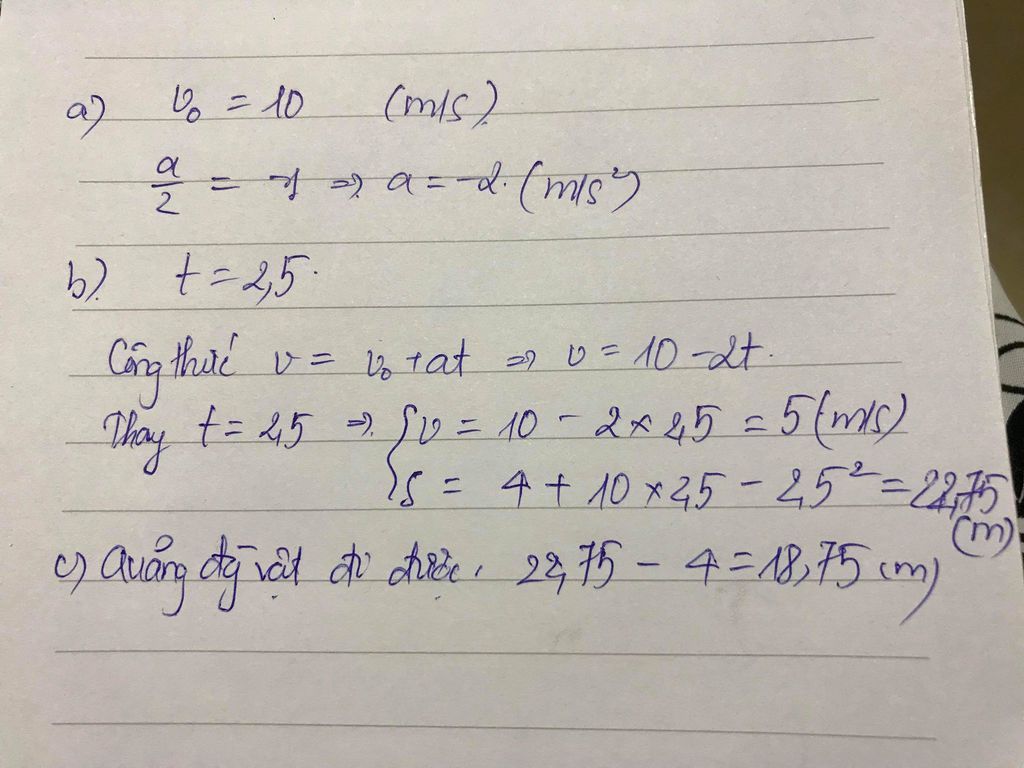 a) v₀ = 10 (m/s).
a/2 = -1 => a = -2. (m/s²)
b). t = 2,5.
Công thức v = v₀ + at => v = 10 - 2t.
Thay t = 2,5 => { v = 10 - 2 × 2,5 = 5 (m/s)
S = 4 + 10 × 2,5 - 2,5² = 22,75 (m)
c) Quảng đg vật đi được. 22,75 - 4 = 18,75 (m)